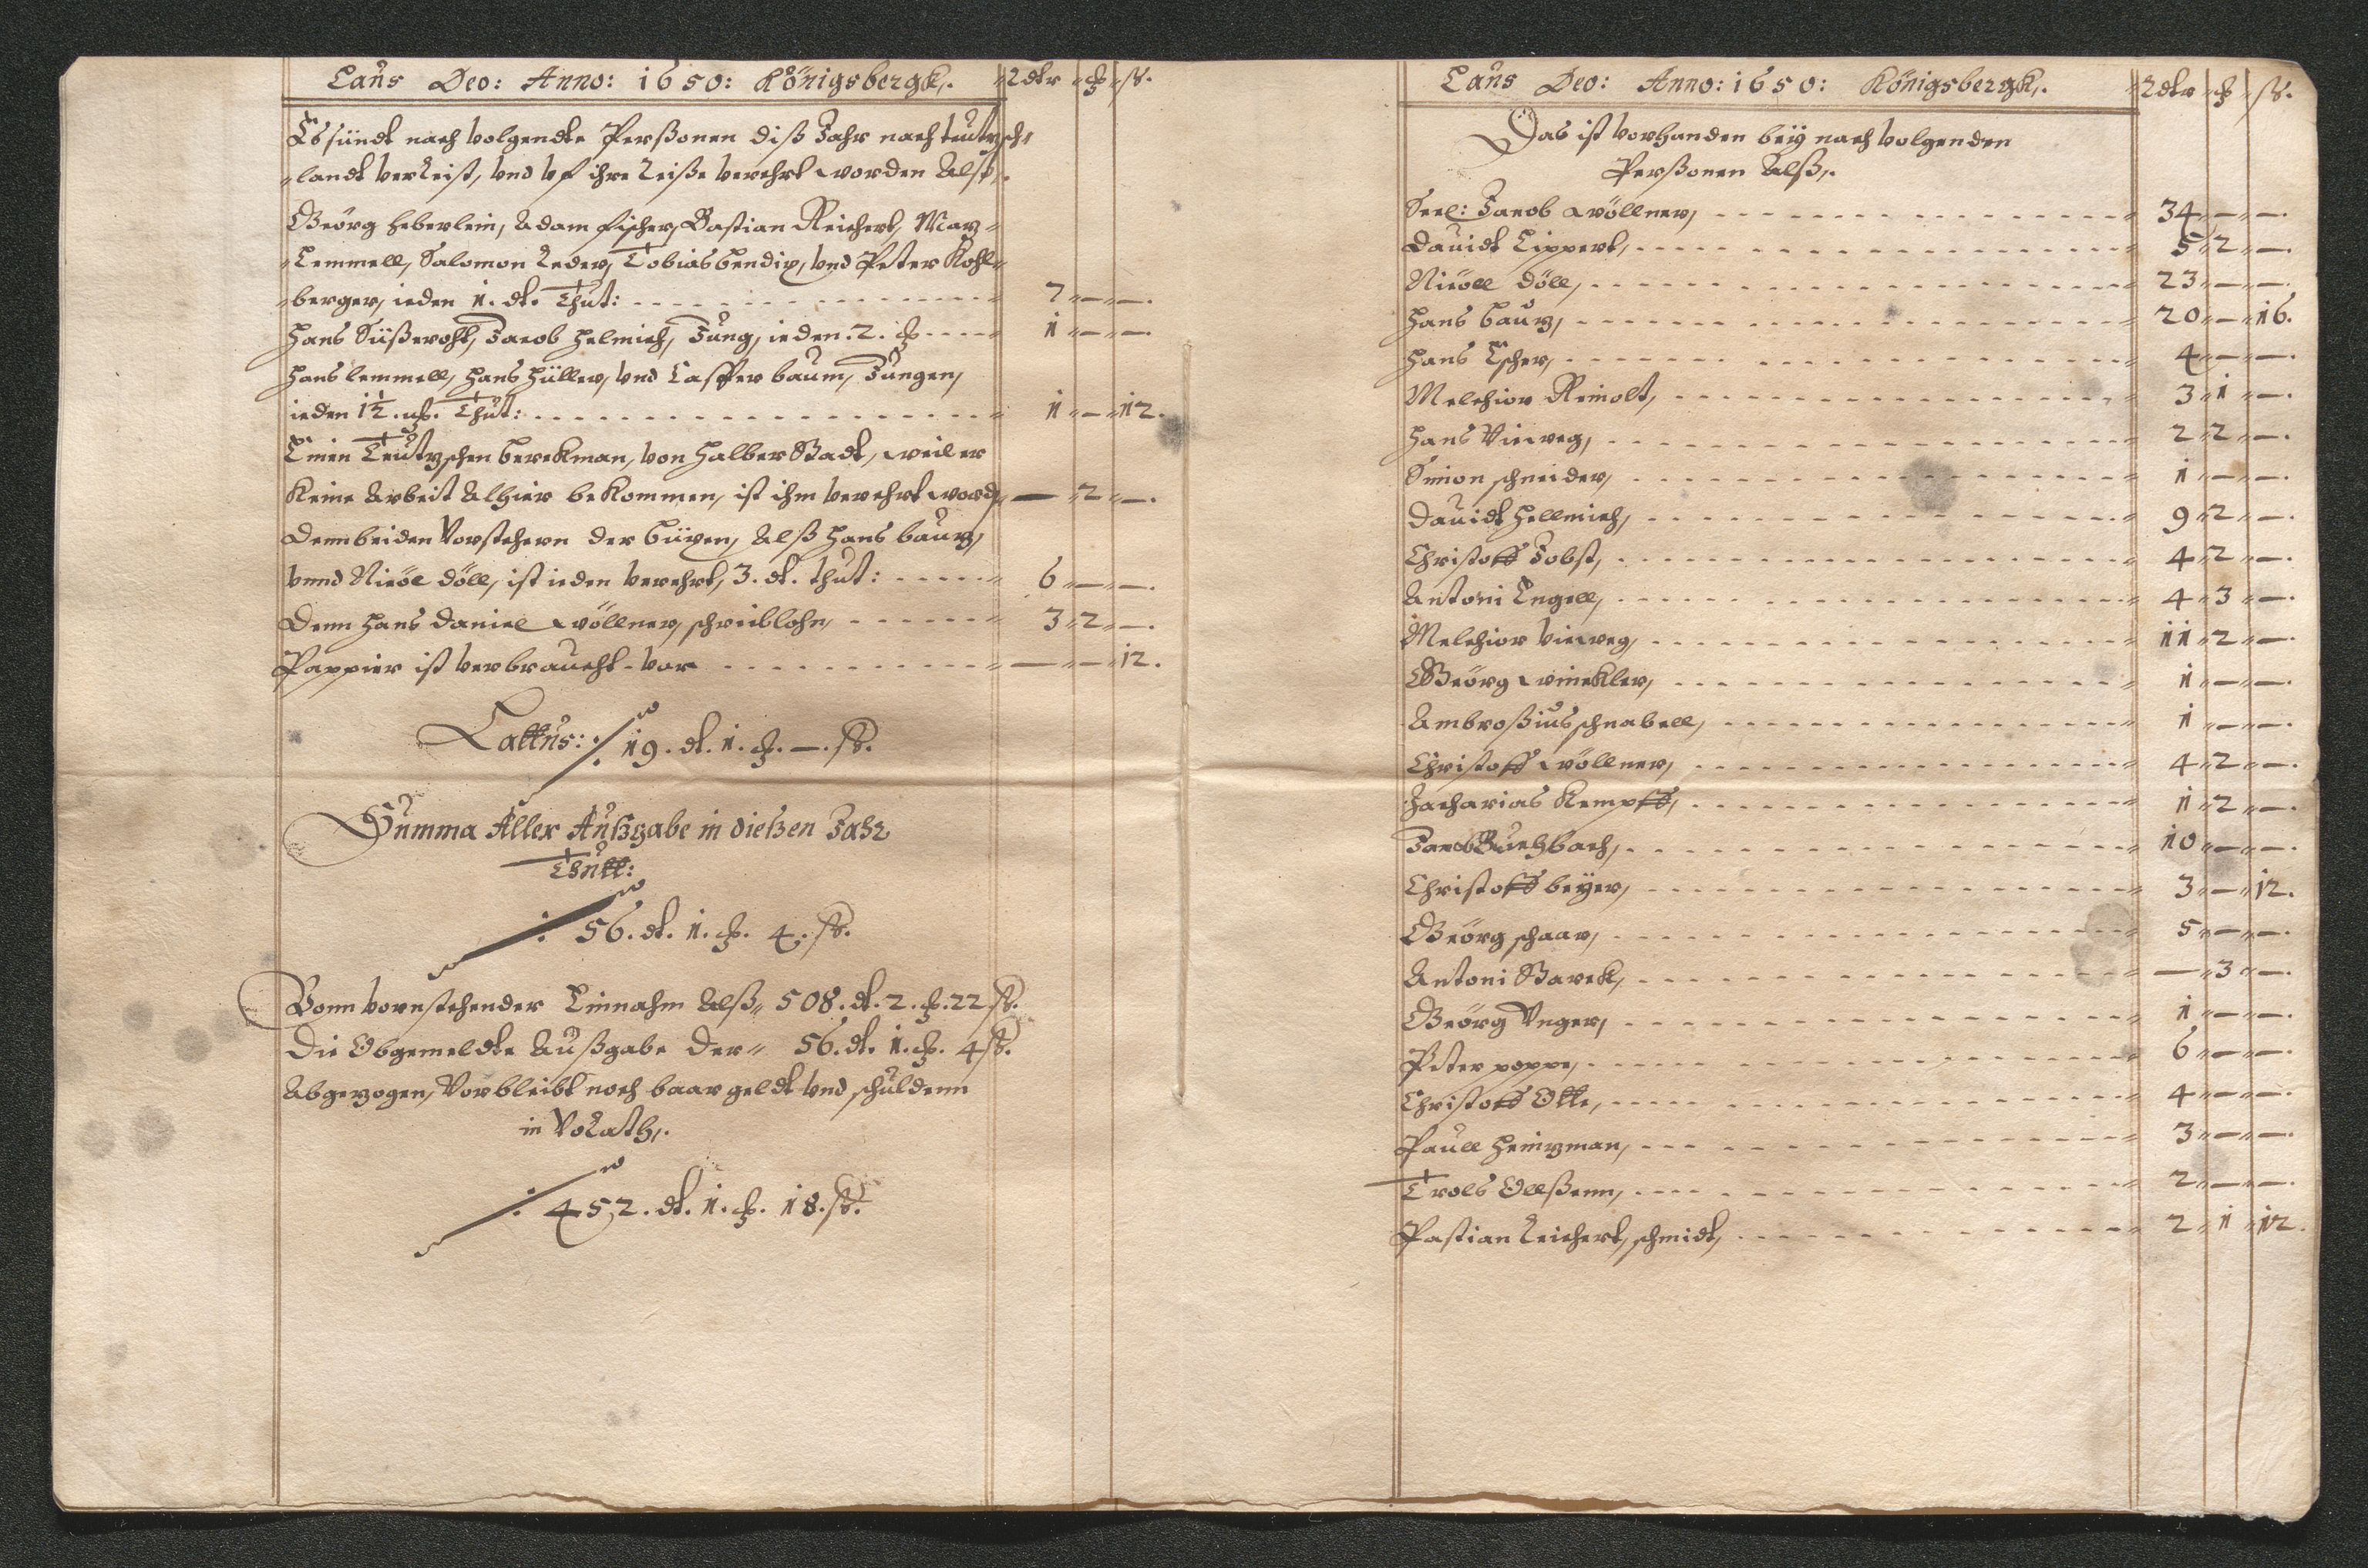 Laus Deo: Anno: 1650: Königsbergk. Rdtr ß.
Es sündt nach volgendte Perßonen diß Jahr nach teutzsch
landt verreist, vnd vf ihre reiße verehrt worden Alß,
Geörg heberlein, Adam fischer, Bastian Reichert, Marx
Lemmell, Salomon reder, Tobias bendix, vnd Peter Kohl
berger, ieden 1. dt. Thut: 7 — —
Hans Süßeroht, Jacob Helmich, Jung, ieden. 2. 1 — —
Hans lemmell, Hans Hüller, vnd Casper baum, Jungen,
ieden 1½. Thut: 1 — 12.
Einen Teutzschen berckman, von Halber Stadt, weil er
Keine Arbeit Alhier bekommen, ist ihm verehrt word, — 2 —
Denn beiden Vorstehern der büxen, Alß Hans baur,
vnnd Nicöl döll, ist ieden verehrt, 3. dt. thut: 6 — —
Denn Hans Daniel wöllner, schreiblohn, 3 2 —
Pappier ist verbraucht vor — — 12.
Lattus: 19. dt. 1. —. ß.
Summa Aller Außgabe in dießen Jahr
Thutt:
56. dt. 1. 4. ß.
Vonn vornstehender Einnahm Alß, 508. dt. 2. 22 ß.
Die Obgemeldte Außgabe der 56. dt. 1. 4 ß.
Abgezogen, Vorbleibt noch baar geldt vnd schuldenn
in Vorath.
452. dt. 1. 18. ß.
Laus Deo: Anno: 1650: Königsbergk. Rdtr ß.
Das ist vorhanden beÿ nach volgenden
Perßonen Alß,
Seel: Jacob wöllner, 34 — —
Dauidt Lippert, 5 2 —
Nicöll döll, 23 — —
Hans baur, 20 — 16.
Hans Escher, 4 — —
Melchior Reinolt, 3 1 —
Hans Vieweg, 2 2 —
Simon schneider, 1 — —
Dauidt Hellmich, 9 2 —
Christoff Jobst, 4 2 —
Antoni Engell, 4 3 —
Melchior vieweg, 11 2 —
Geörg winckler, 1 — —
Ambroßius schnabell, 1 — —
Christoff wöllner, 4 2 —
Zacharias Kempff, 1 2 —
Jacob Buchbach, 10 — —
Christoff beÿer, 3 — 12.
Geörg schaar, 5 — —
Antoni Starck, — 3 —
Geörg Vnger, 1 — —
Peter poppe, 6 — —
Christoff Otte, 4 — —
Paull Heinzman, 3 — —
Trols Ollßenn, 2 — —
Pastian reichert, schmidt, 2 1 12.